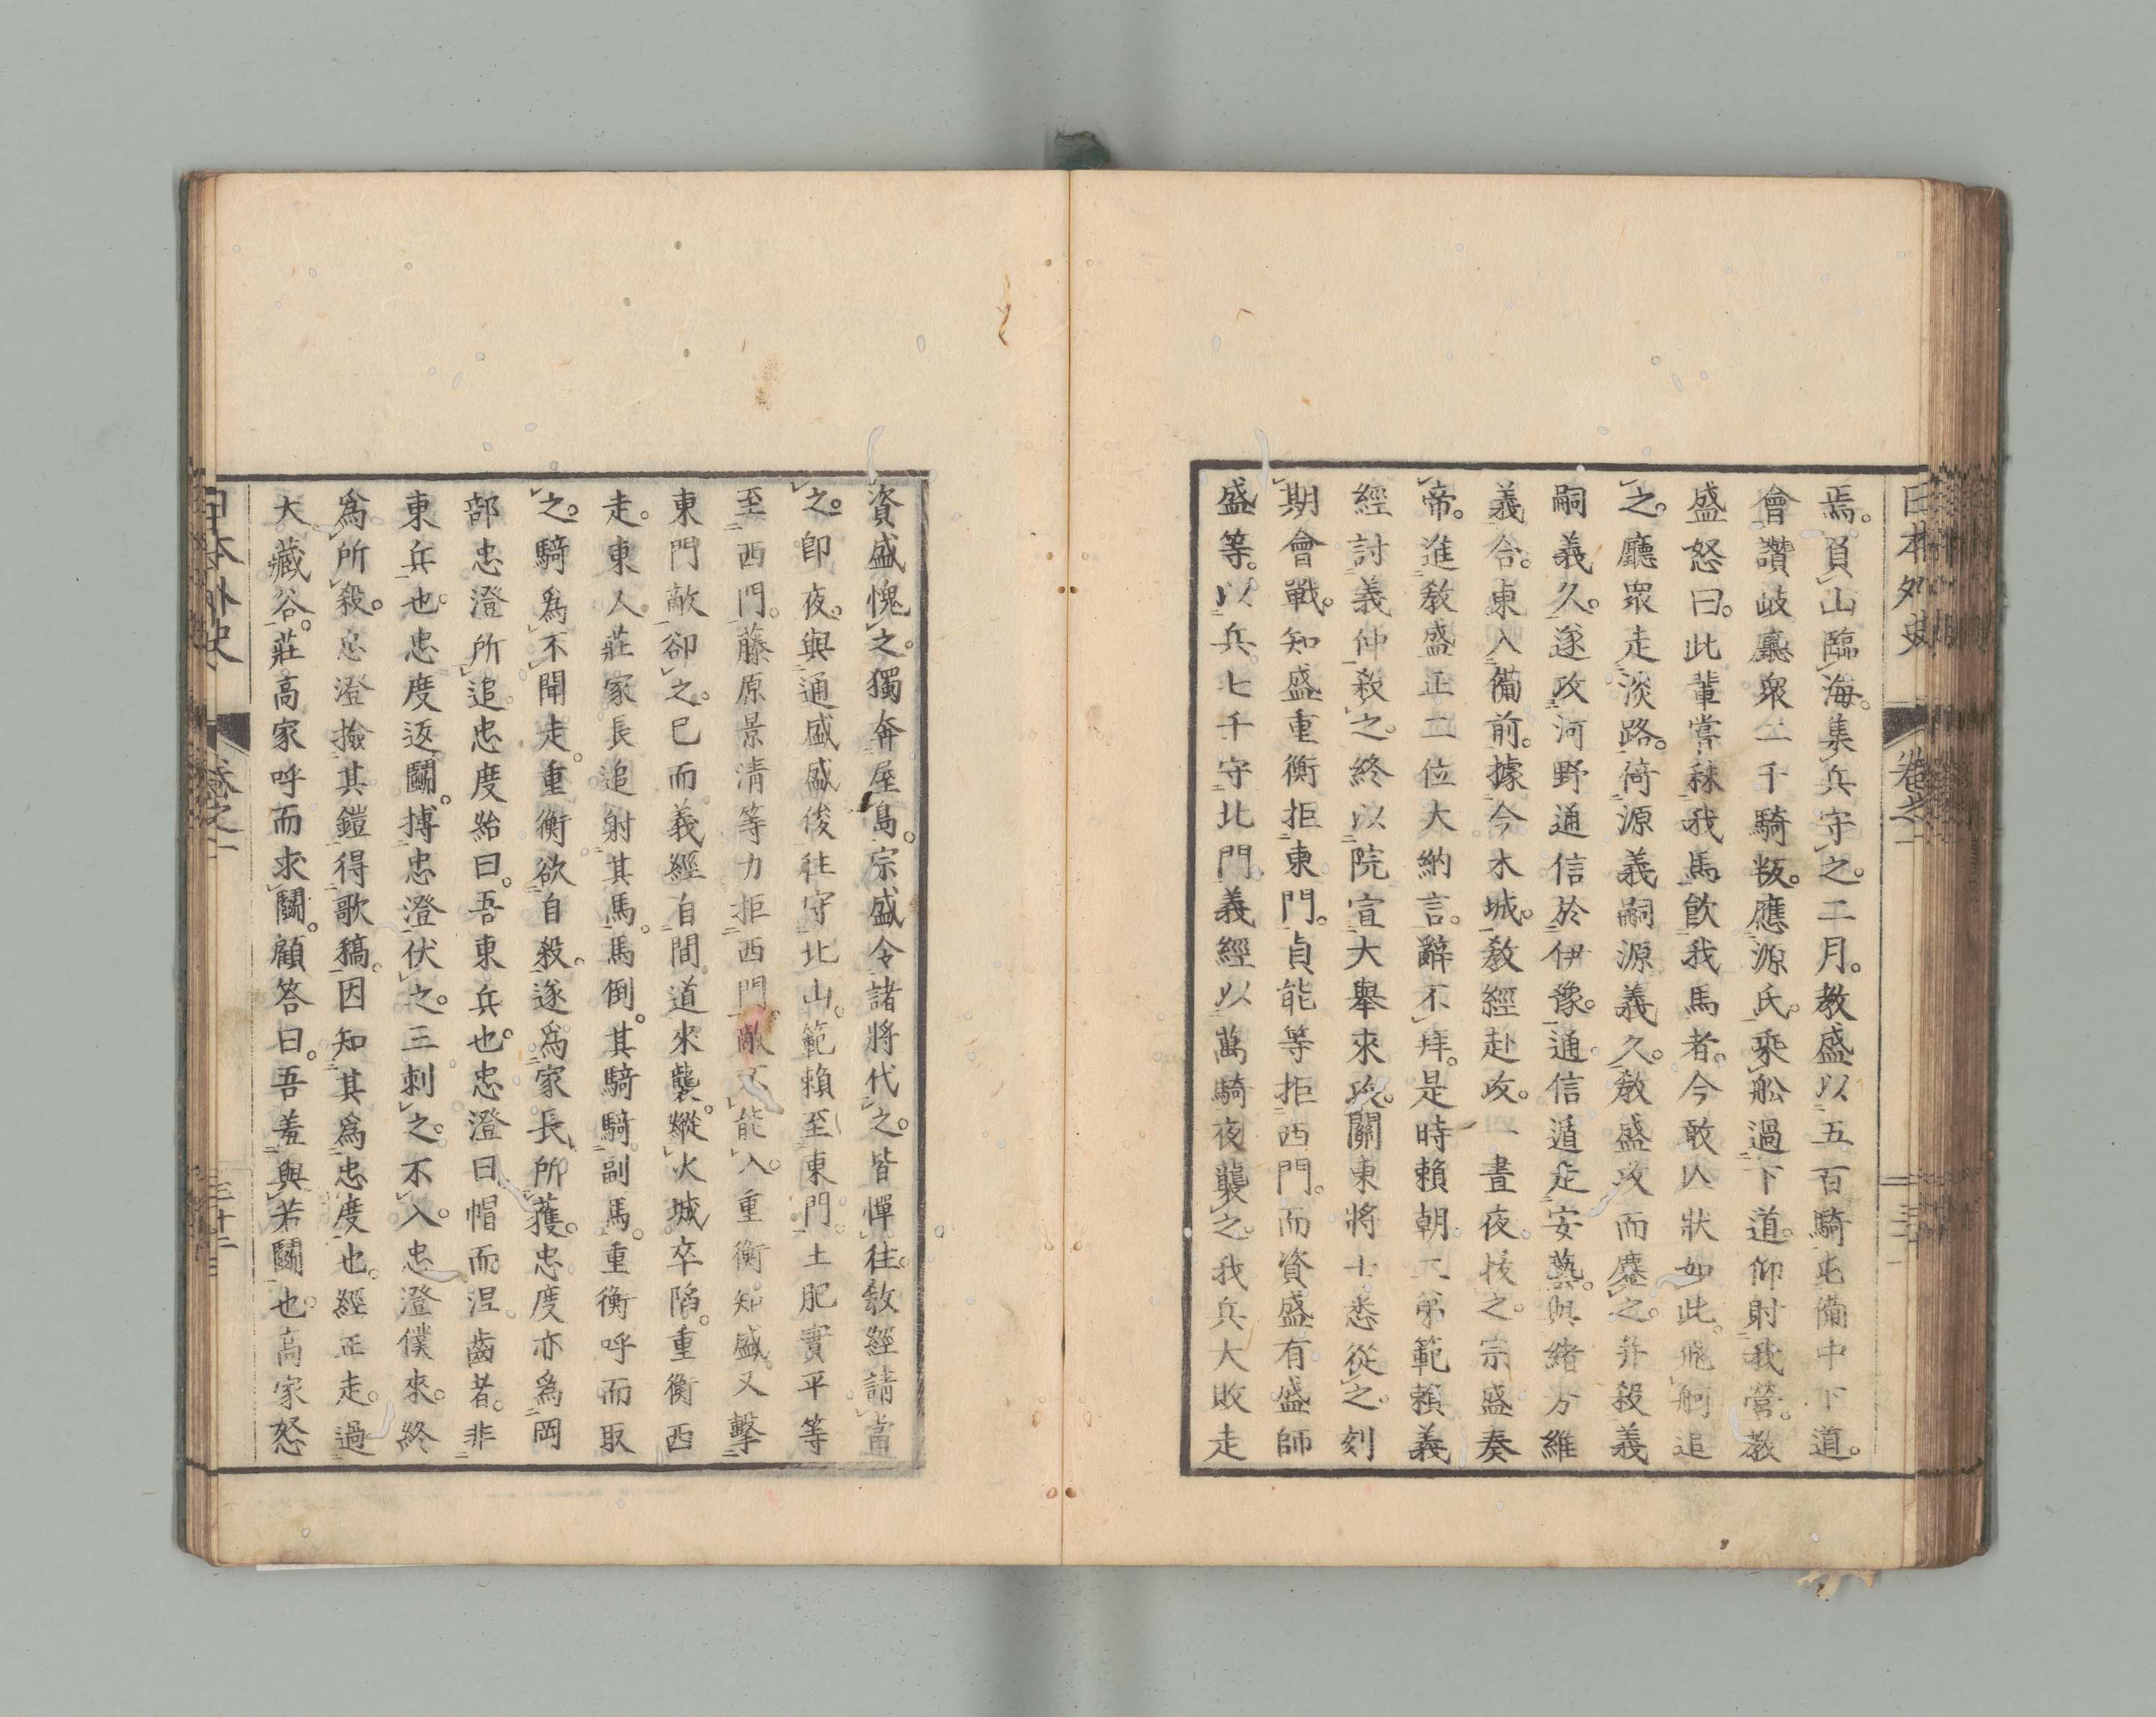 日本外史
卷之一
焉。負山臨海。集兵守之。二月。教盛以五百騎屯備中下道。
會讚岐廳衆二千騎叛。應源氏。乘舩過下道。仰射我營。教
盛怒曰。此輩嘗秣我馬飮我馬者。今敢以狀如此。飛舸追
之。廳眾走淡路。倚源義嗣源義久。教盛攻而鏖之。并殺義
嗣義久。遂攻河野通信於伊豫。通信遁走安藝。與緒方維
義合。東入備前。據今木城。教經赴攻。一晝夜。拔之。宗盛奏
帝。進教盛正二位大納言。辭不拜。是時賴朝二弟範賴義
經討義仲殺之。終以院宣大舉來攻。關東將士悉從之。刻
期會戰。知盛重衡拒東門。貞能等拒西門。而資盛有盛師
盛等。以兵七千守北門。義經以萬騎夜襲之。我兵大敗走
資盛愧之。獨奔屋島。宗盛令諸將代之。皆憚往。教經請當
之。卽夜。與通盛盛俊往守北山。範賴至東門。土肥實平等
至西門。藤原景清等力拒西門。敵不能入。重衡知盛又擊
東門敵卻之。已而義經自間道來襲。縱火城卒陷。重衡西
走。東人莊家長追射其馬。馬倒。其騎騎副馬。重衡呼而取
之。騎爲不聞走。重衡欲自殺。遂爲家長所獲。忠度亦爲岡
部忠澄所追。忠度紿曰。吾東兵也。忠澄曰帽而涅齒者。非
東兵也。忠度返鬪。搏忠澄伏之。三刺之。不入。忠澄僕來。終
爲所殺。忠澄撿其鎧得歌稿。因知其爲忠度也。經正走。過
大藏谷。莊高家呼而求鬪。顧答曰。吾羞與若鬪也。高家怒
日本外史
卷之一
三十二